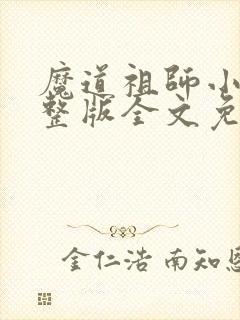 魔道祖師小
整版全文免
金仁浩 南知恩